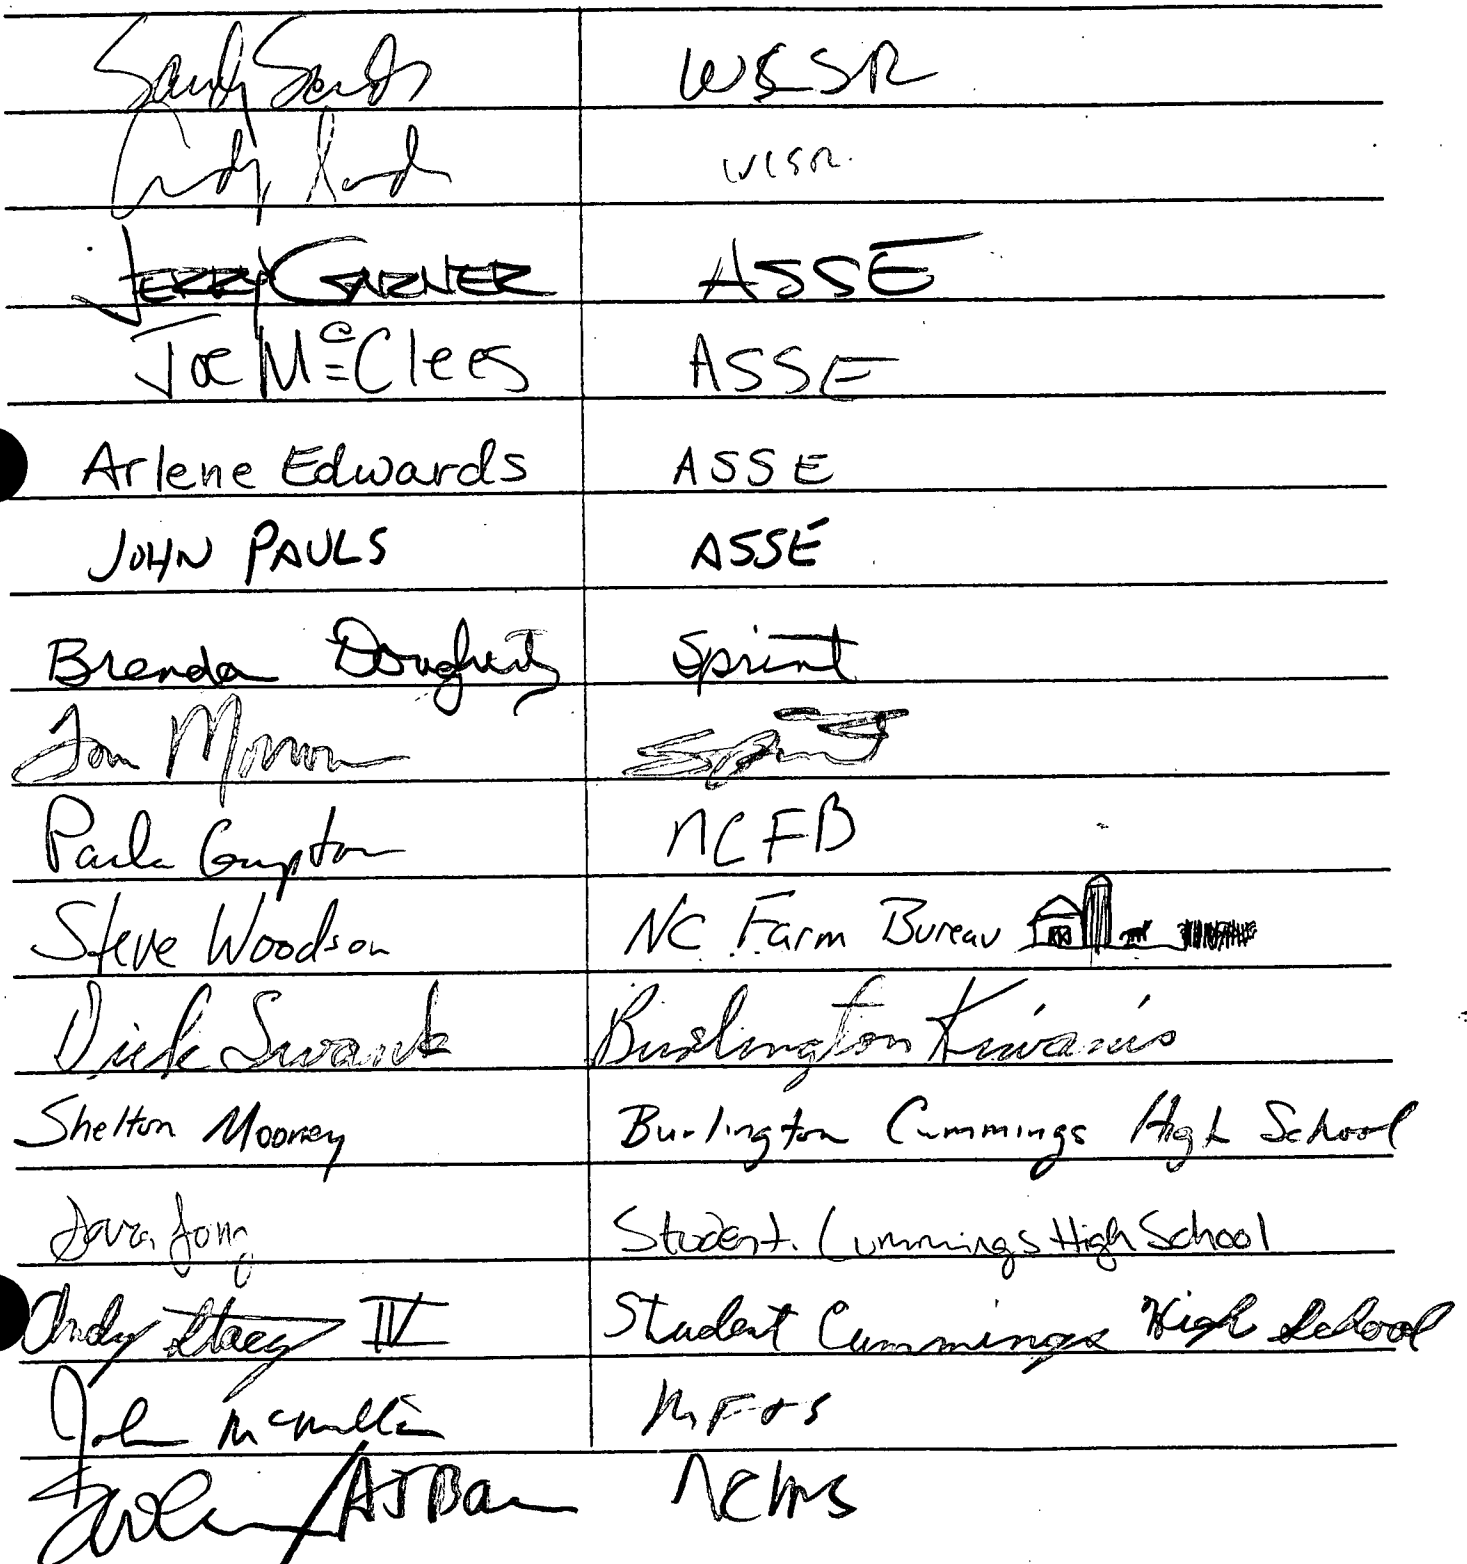 Sandy Sands WCSR
WCSR
Jerry Garner ASSE
Joe McClees ASSE
Arlene Edwards ASSE
JOHN PAULS ASSE
Brenda Dougherty Sprint
Tom Morrow Sprint
Paula Gupton NCFB
Steve Woodson NC Farm Bureau
Dick Swank Burlington Kiwanis
Shelton Mooney Burlington Cummings High School
Student Cummings High School
Andy Stacey IV Student Cummings High School
John McMillan MF+S